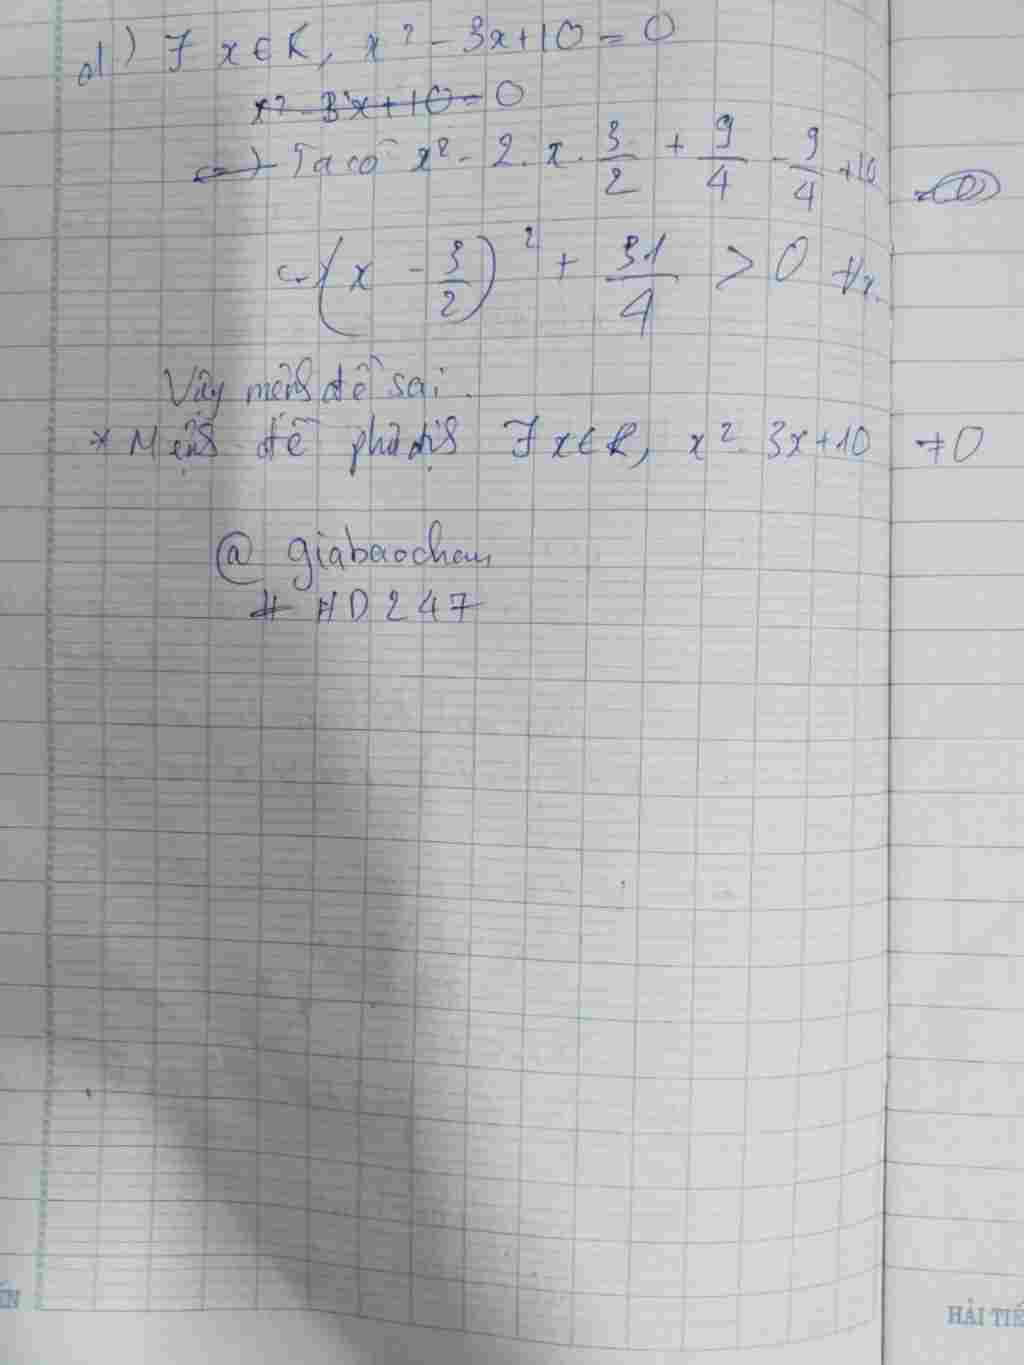 d) ∃ x ∈ R, x² - 3x + 10 = 0
x² - 3x + 10 = 0
Ta có x² - 2.x.3/2 + 9/4 - 9/4 + 10
= (x - 3/2)² + 31/4 > 0 ∀x.
Vậy mệnh đề sai.
* Mệnh đề phủ định ∃ x ∈ R, x² - 3x + 10 ≠ 0
@ giabaochan
# HD247
HẢI TIẾ